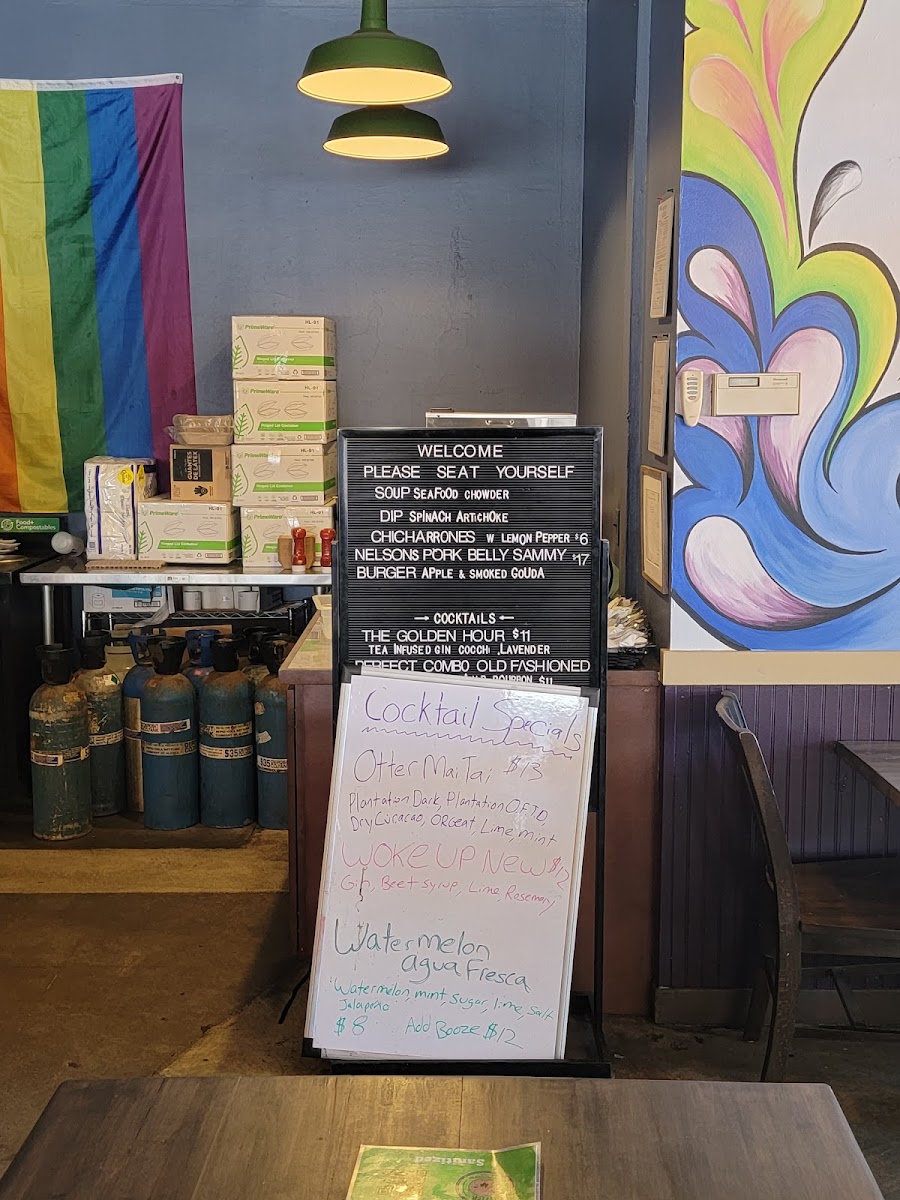 WELCOME
PLEASE SEAT YOURSELF
SOUP SEAFOOD CHOWDER
DIP SPINACH ARTICHOKE
CHICHARRONES W LEMON PEPPER $6
NELSONS PORK BELLY SAMMY $17
BURGER APPLE & SMOKED GOUDA
→ COCKTAILS ←
THE GOLDEN HOUR $11
TEA INFUSED GIN COCCHI , LAVENDER
PERFECT COMBO OLD FASHIONED
BOURBON $11
Cocktail Specials
Otter Mai Tai $13
Plantation Dark, Plantation O.F.T.D
Dry Curacao, ORGeat, Lime, mint
WOKE UP New $12
Gin, Beet syrup, Lime, Rosemary
Watermelon
agua Fresca
Watermelon, mint, sugar, lime, salt
Jalapeño
$8 Add Booze $12
HL-91
PrimeWare
Hinged Lid Container
HL-91
PrimeWare
Hinged Lid Container
HL-91
PrimeWare
Hinged Lid Container
PrimeWare
PrimeWare
GUANTES
DE LATEX
Food+
Compostables
$35
$35
Sanitized